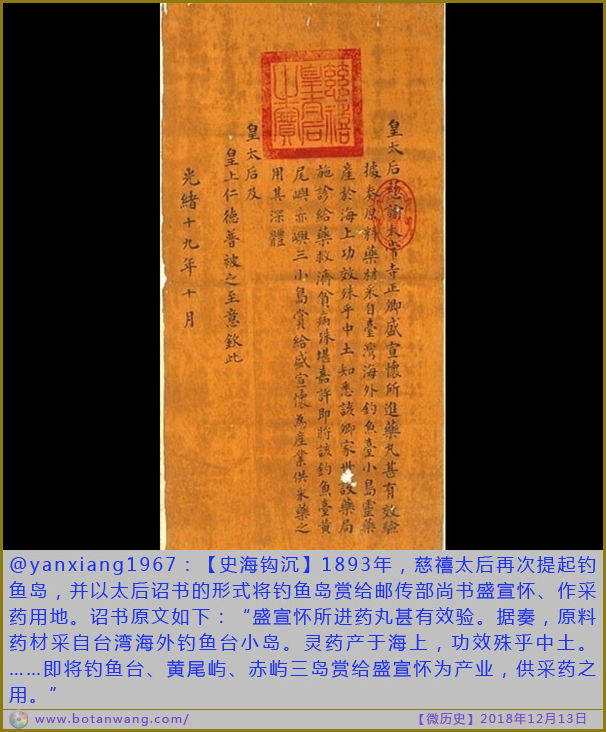 慈禧
皇太后
之寶
皇太后慈諭太常寺正卿盛宣懷所進藥丸甚有效驗
據奏原料藥材采自臺灣海外釣魚臺小島靈藥
產於海上功效殊乎中土知悉該卿家世設藥局
施診給藥救濟貧病殊堪嘉許即將該釣魚臺黃
尾嶼赤嶼三小島賞給盛宣懷為產業供采藥之
用其深體
皇太后及
皇上仁德普被之至意欽此
光緒十九年十月
@yanxiang1967：【史海钩沉】1893年，慈禧太后再次提起钓
鱼岛，并以太后诏书的形式将钓鱼岛赏给邮传部尚书盛宣怀、作采
药用地。诏书原文如下：“盛宣怀所进药丸甚有效验。据奏，原料
药材采自台湾海外钓鱼台小岛。灵药产于海上，功效殊乎中土。
……即将钓鱼台、黄尾屿、赤屿三岛赏给盛宣怀为产业，供采药之
用。”
www.botanwang.com/
【微历史】2018年12月13日